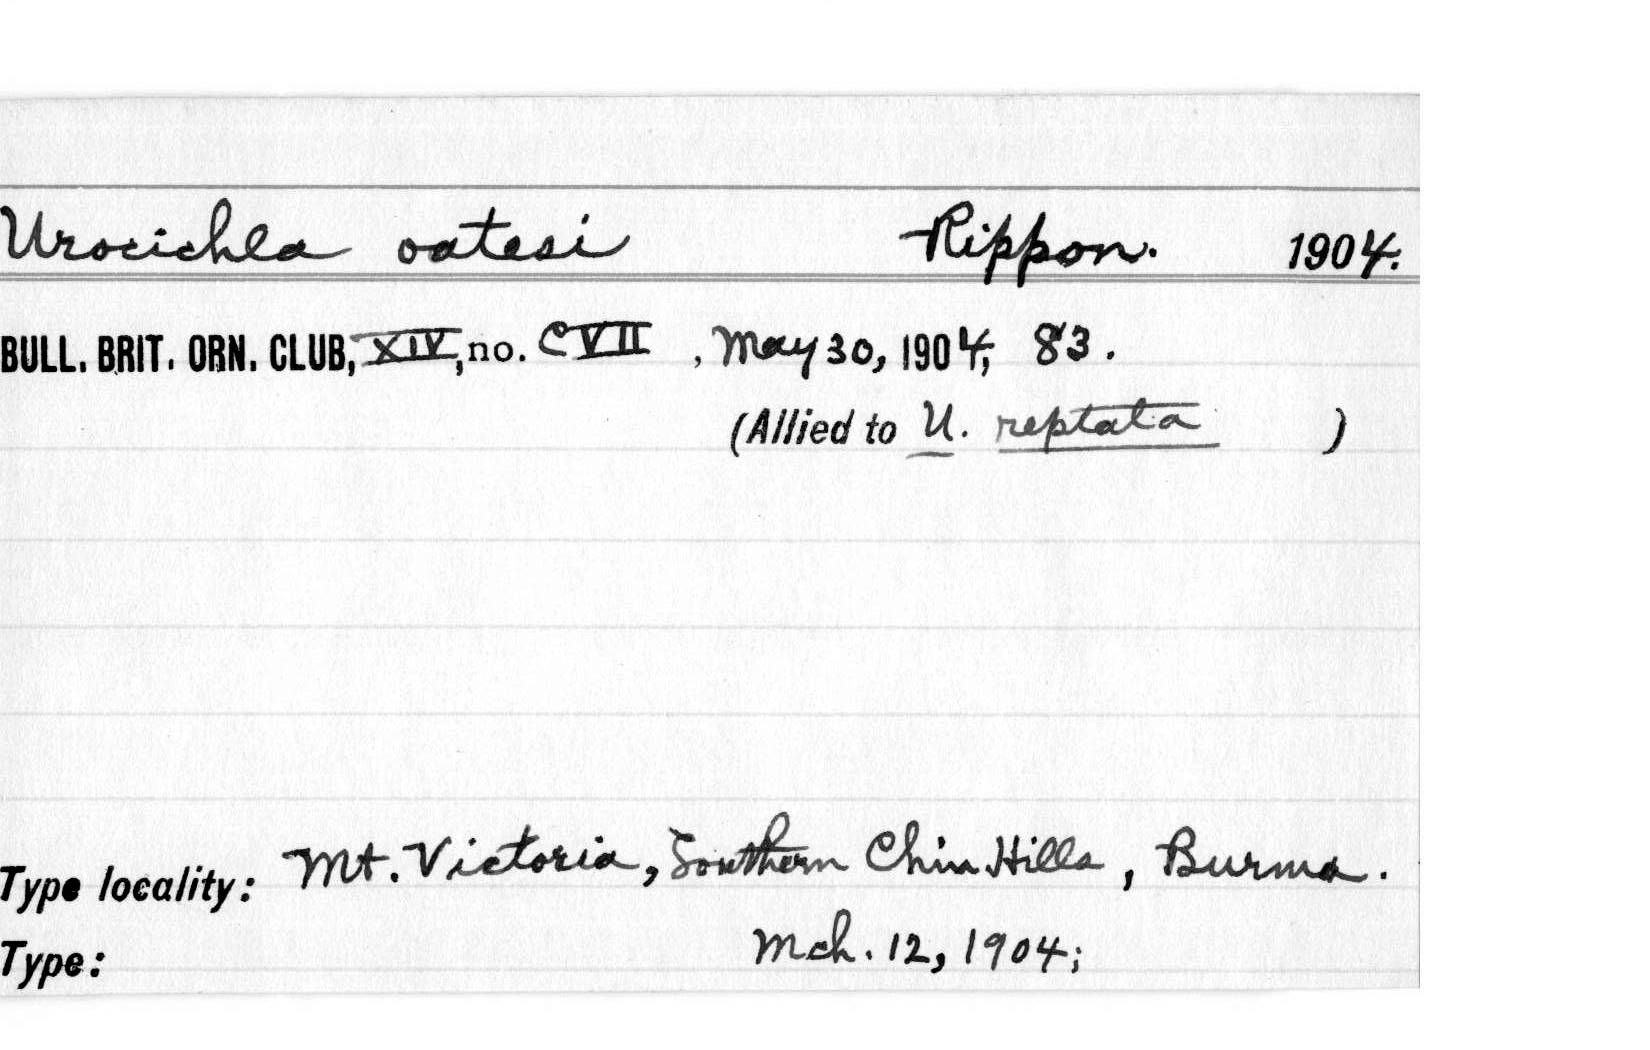 Urocichla oatesi Rippon. 1904.
BULL. BRIT. ORN. CLUB, XIV, no. CVII , May 30, 1904, 83.
(Allied to U. reptata )
Type locality: Mt. Victoria, Southern Chin Hills, Burma.
Type: Mch. 12, 1904;